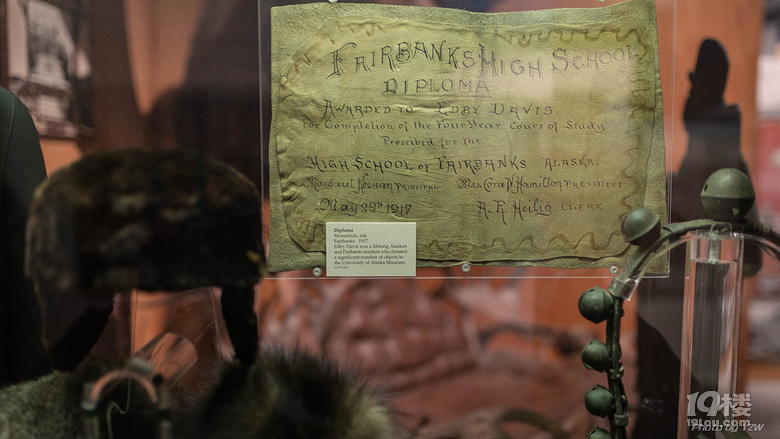 FAIRBANKS HIGH SCHOOL
DIPLOMA
AWARDED TO EDBY DAVIS
For Completion of the Four Year Cours of Study
Prescibed for the
HIGH SCHOOL OF FAIRBANKS ALASKA.
Margaret Keenan PRINCIPAL Mrs. Cora N. Hamilton PRESIDENT
May 29th 1917 A. R. Heilig CLERK
Diploma
Moosehide, ink
Fairbanks 1917
Edby Davis was a lifelong Alaskan
and Fairbanks resident who donated
a significant number of objects to
the University of Alaska Museum.
19楼
19lou.com
Photo by YZW